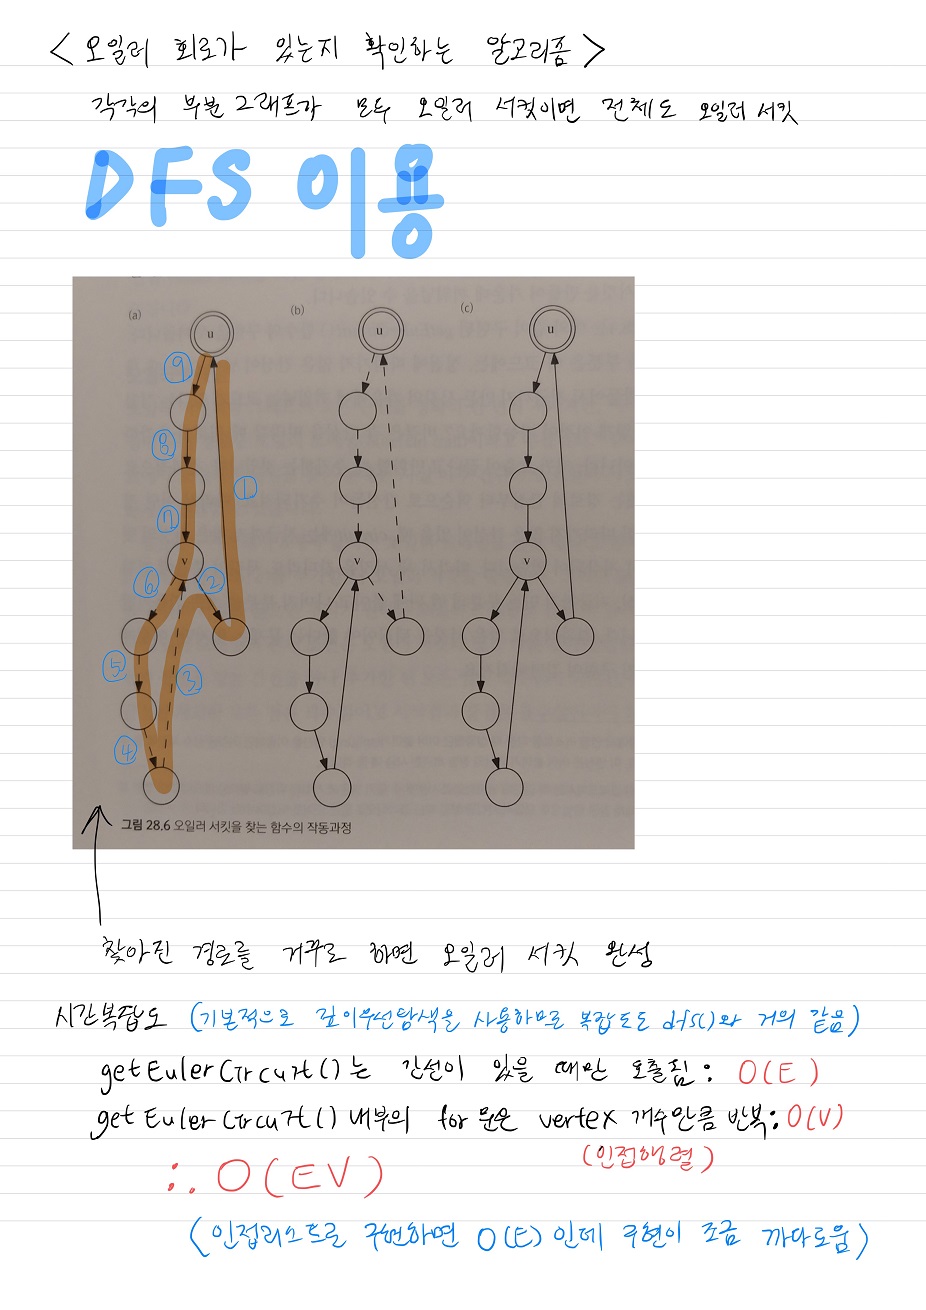 < 오일러 회로가 있는지 확인하는 알고리즘 >
각각의 부분 그래프가 모두 오일러 서킷이면 전체도 오일러 서킷
DFS 이용
(a) (b) (c)
u u u
⑨
⑧
①
⑦
v v v
⑥ ②
⑤
③
④
그림 28.6 오일러 서킷을 찾는 함수의 작동과정
찾아진 경로를 거꾸로 하면 오일러 서킷 완성
시간복잡도 (기본적으로 깊이우선탐색을 사용하므로 복잡도도 dfs()와 거의 같음)
getEulerCircuit()는 간선이 있을 때만 호출됨: O(E)
getEulerCircuit() 내부의 for 문은 vertex 개수만큼 반복: O(V)
(인접행렬)
∴ O(EV)
(인접리스트로 구현하면 O(E)인데 구현이 조금 까다로움)